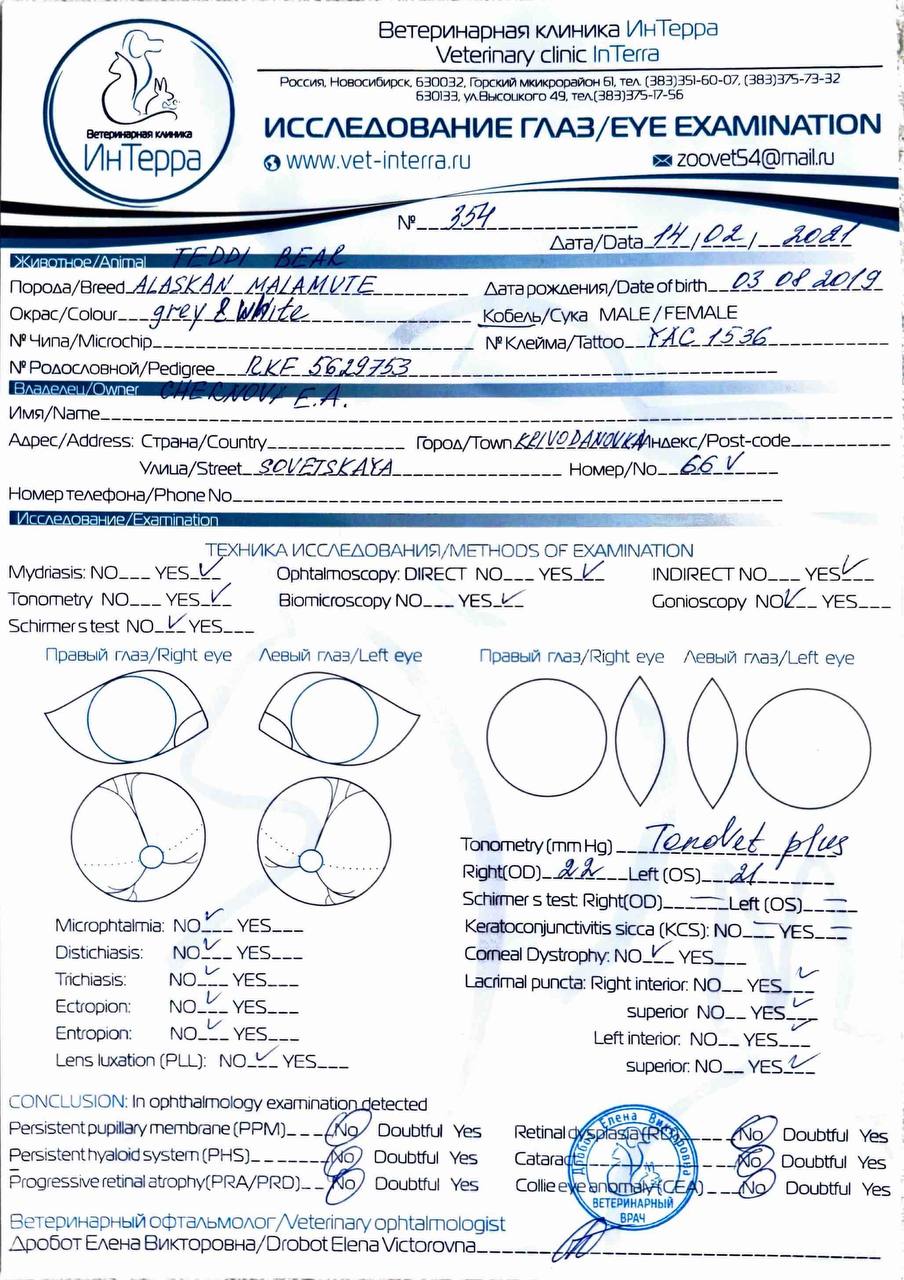 Ветеринарная клиника ИнТерра
Veterinary clinic InTerra
Россия, Новосибирск, 630032, Горский мкикрорайон 61, тел. (383)351-60-07, (383)375-73-32
630133, ул.Высоцкого 49, тел.(383)375-17-56
Ветеринарная клиника
ИнТерра
ИССЛЕДОВАНИЕ ГЛАЗ/EYE EXAMINATION
www.vet-interra.ru zoovet54@mail.ru
№ 354
Дата/Data 14/02/2021
Животное/Animal TEDDI BEAR
Порода/Breed ALASKAN MALAMUTE Дата рождения/Date of birth 03 08 2019
Окрас/Colour grey & white Кобель/Сука MALE/FEMALE
№ Чипа/Microchip № Клейма/Tattoo YAC 1536
№ Родословной/Pedigree RKF 5629753
Владелец/Owner CHERNOVY E.A.
Имя/Name
Адрес/Address: Страна/Country Город/Town KRIVODANOVKA Индекс/Post-code
Улица/Street SOVETSKAYA Номер/No 66 V
Номер телефона/Phone No
Исследование/Examination
ТЕХНИКА ИССЛЕДОВАНИЯ/METHODS OF EXAMINATION
Mydriasis: NO YES ✓ Ophtalmoscopy: DIRECT NO YES ✓ INDIRECT NO YES ✓
Tonometry NO YES ✓ Biomicroscopy NO YES ✓ Gonioscopy NO ✓ YES
Schirmer s test NO ✓ YES
Правый глаз/Right eye Левый глаз/Left eye Правый глаз/Right eye Левый глаз/Left eye
Tonometry (mm Hg) TonoVet plus
Right(OD) 22 Left (OS) 21
Schirmer s test: Right(OD) — Left (OS) —
Microphtalmia: NO ✓ YES Keratoconjunctivitis sicca (KCS): NO — YES —
Distichiasis: NO ✓ YES Corneal Dystrophy: NO ✓ YES
Trichiasis: NO ✓ YES Lacrimal puncta: Right interior: NO YES ✓
Ectropion: NO ✓ YES superior NO YES ✓
Entropion: NO ✓ YES Left interior: NO YES ✓
Lens luxation (PLL): NO ✓ YES superior: NO YES ✓
CONCLUSION: In ophthalmology examination detected
Persistent pupillary membrane (PPM) No Doubtful Yes Retinal dysplasia (RD) No Doubtful Yes
Persistent hyaloid system (PHS) No Doubtful Yes Catarac No Doubtful Yes
Progressive retinal atrophy(PRA/PRD) No Doubtful Yes Collie eye anomaly (CEA) No Doubtful Yes
Дробот Елена Викторовна
ВЕТЕРИНАРНЫЙ
ВРАЧ
Ветеринарный офтальмолог/Veterinary ophtalmologist
Дробот Елена Викторовна/Drobot Elena Victorovna